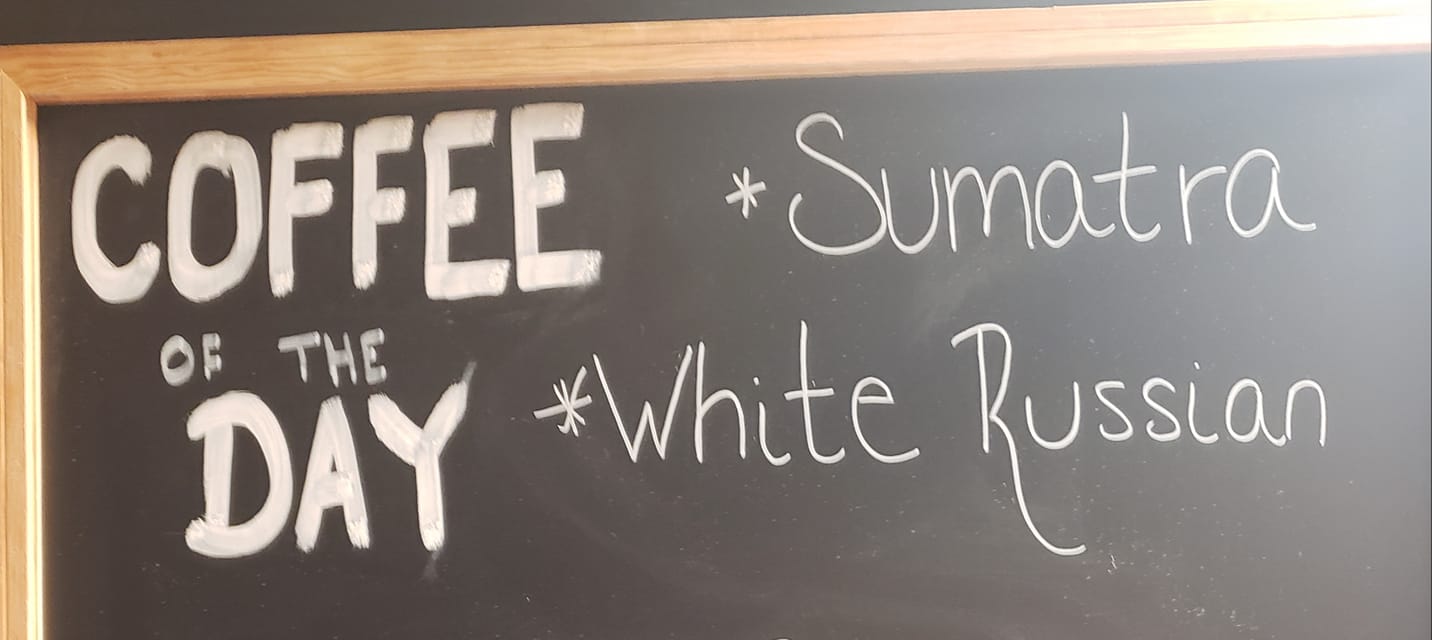 COFFEE
OF THE
DAY
*Sumatra
*White Russian